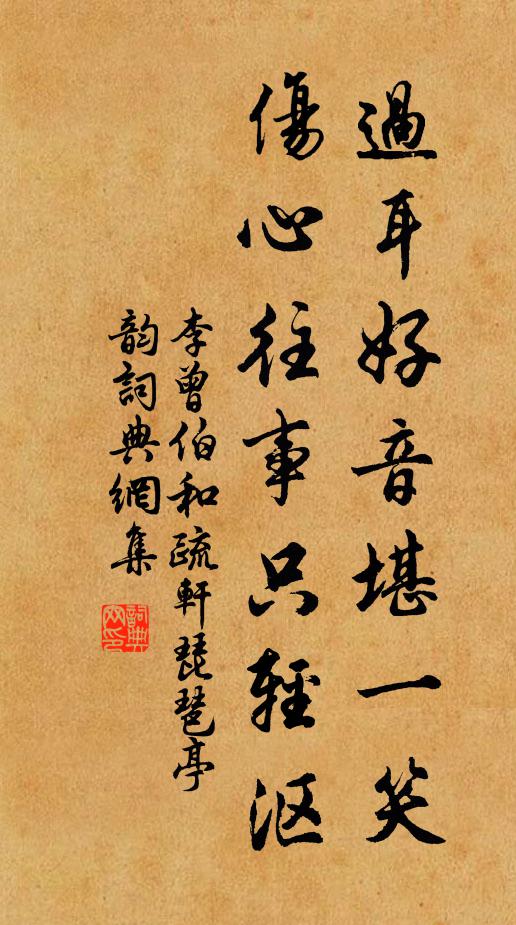 過耳好音堪一笑
傷心往事只輕漚
李曾伯和疏軒琵琶亭
韵詞典網集
詞典
网印